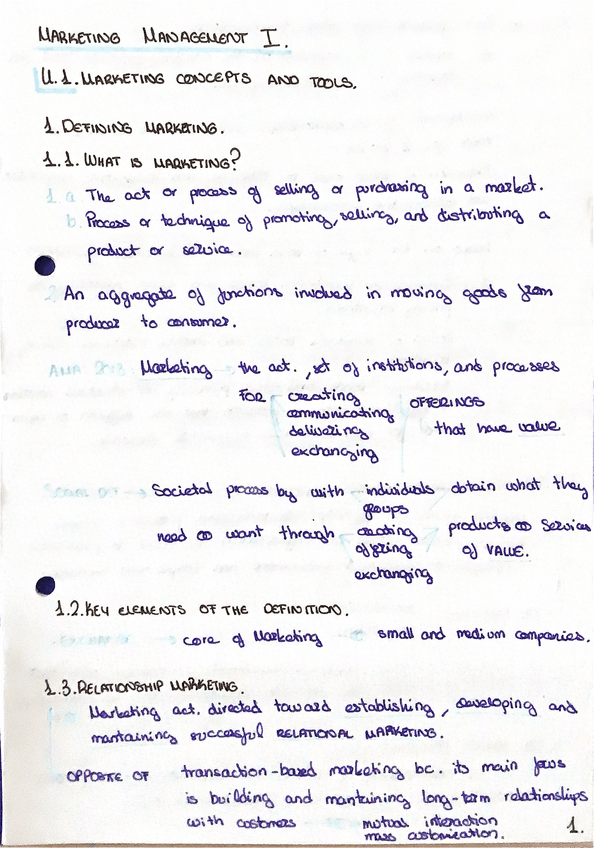 MARKETING MANAGEMENT I.
U.1. MARKETING CONCEPTS AND TOOLS.
1. DEFINING MARKETING.
1.1. WHAT IS MARKETING?
1. a. The act or process of selling or purchasing in a market.
b. Process or technique of promoting, selling, and distributing a
product or service.
2. An aggregate of functions involved in moving goods from
producer to consumer.
AMA 2013: Marketing → the act., set of institutions, and processes
FOR creating OFFERINGS
communicating
delivering that have value
exchanging
SOCIAL → Societal process by with individuals obtain what they
groups
need or want through creating products or services
offring of VALUE.
exchanging
1.2. KEY ELEMENTS OF THE DEFINITION.
EXCHANGE → core of Marketing small and medium companies.
1.3. RELATIONSHIP MARKETING.
Marketing act. directed toward establishing, developing and
mantaining successful RELATIONAL MARKETING.
OPPOSITE OF transaction-based marketing bc. its main focus
is building and mantaining long-term relationships
with customers mutual interaction
mass customization. 1.